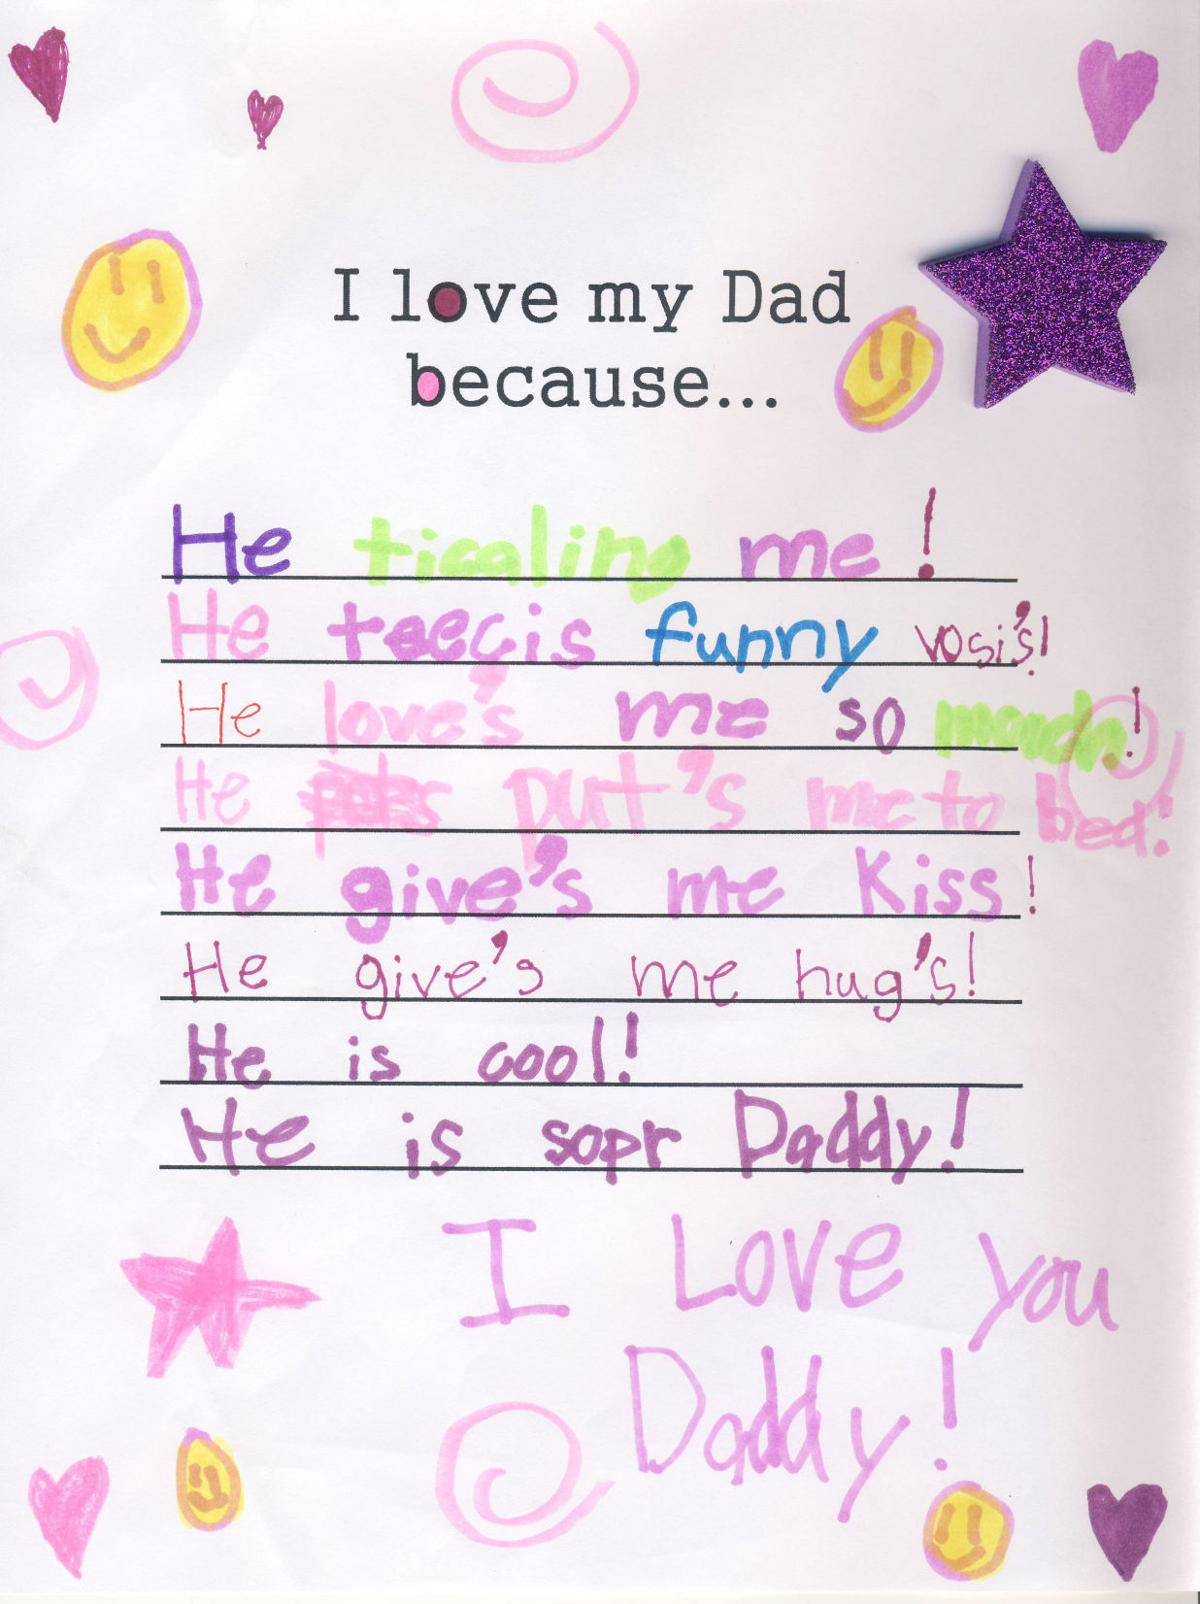 I love my Dad
because...
He ticaling me!
He taecis funny vosi's!
He love's me so much!
He put's me to bed!
He give's me Kiss!
He give's me hug's!
He is cool!
He is sopr Daddy!
I Love you
Daddy!